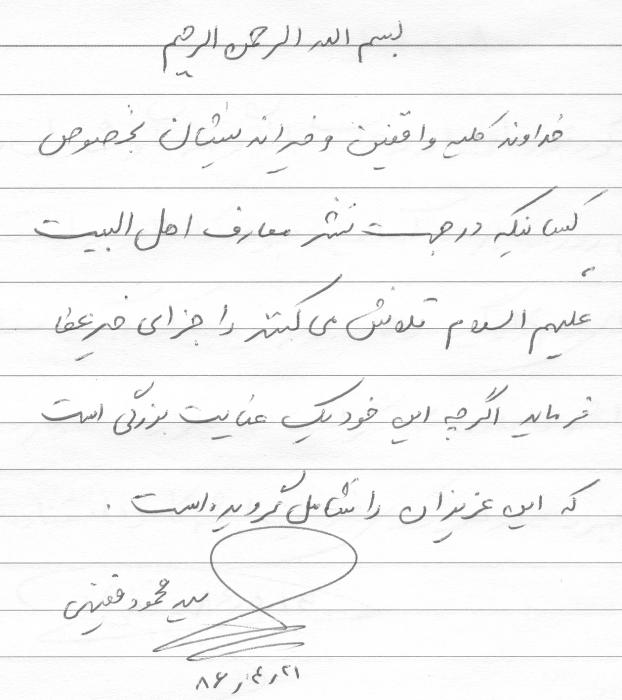 بسم الله الرحمن الرحیم
خداوند کلیه واقفین و خیراندیشان بخصوص
کسانیکه در جهت نشر معارف اهل البیت
علیهم السلام تلاش می کنند را جزای خیر عطا
فرماید اگرچه این خود یک عنایت بزرگی است
که این عزیزان را شامل گردیده است .
سید محمود
۸۶/۴/۲۱